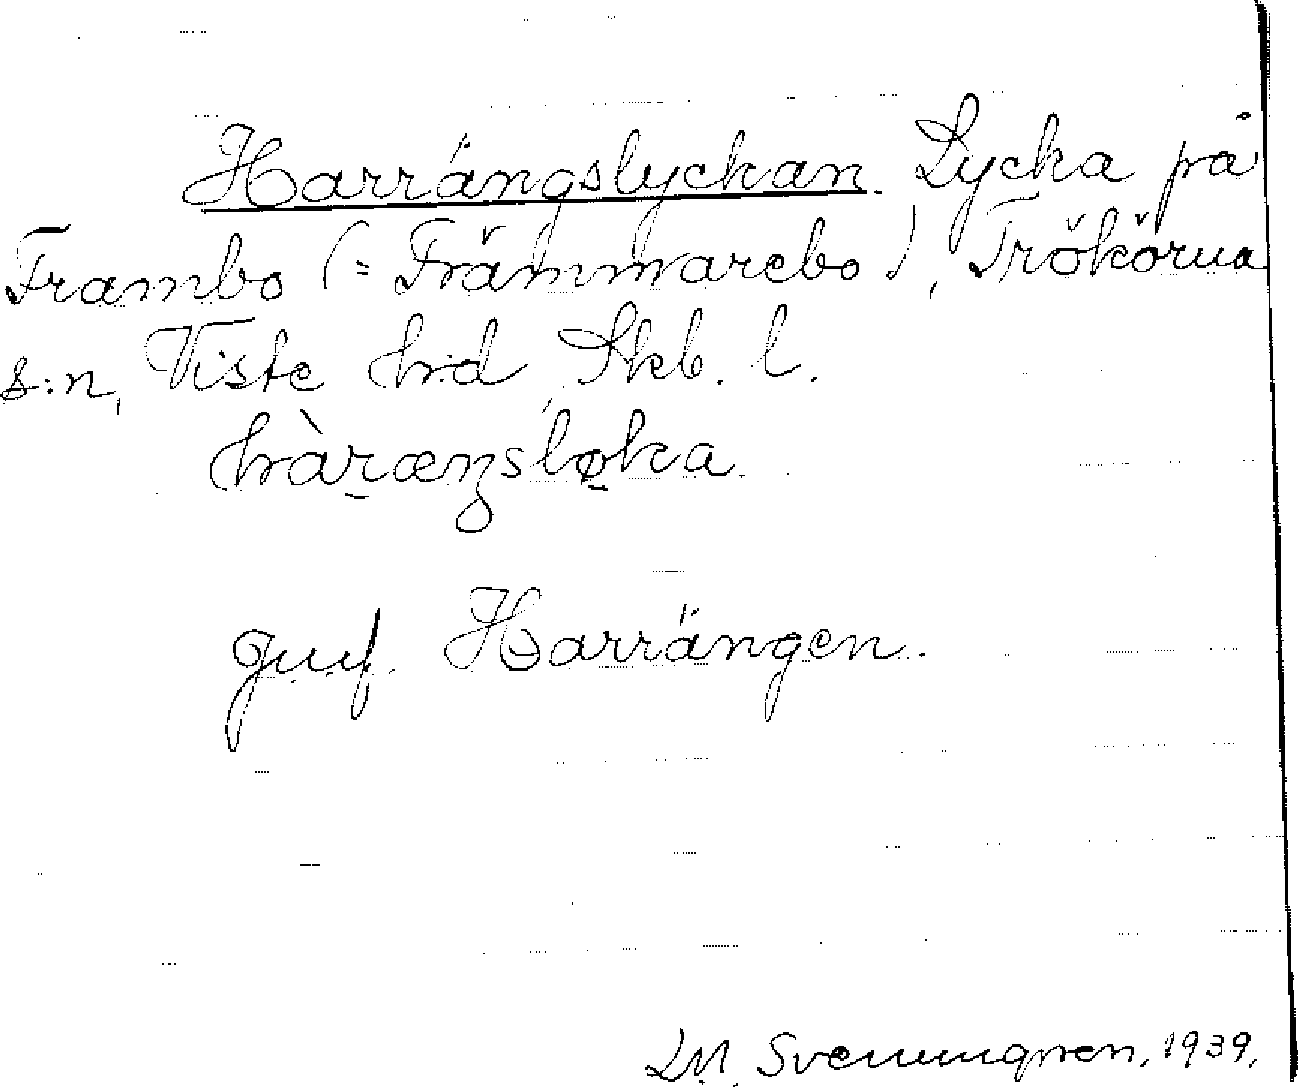 Harrängslyckan. Lycka på
Frambo (= Främmarebo), Trökörna
s:n, Viste hd, Skb. l.
hàr̠æŋslø̠ka.
jmf. Harrängen.
LM. Svenungren, 1939.